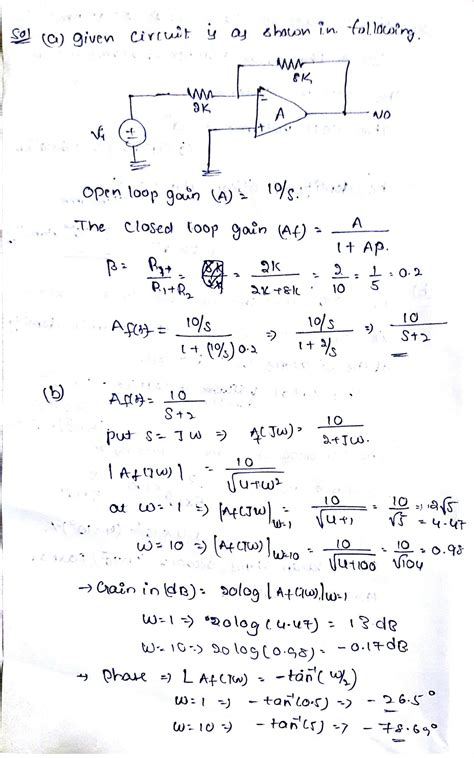 Sol (a) given circuit is as shown in following.
8K
2K
A
Vi
VO
open loop gain (A) = 10/s.
The closed loop gain (Af) = A / 1 + Aβ.
β = / R1+R2 = = 2K / 2K+8K = 2/10 = 1/5 = 0.2
Af(s) = 10/s / 1+(10/s)0.2 => 10/s / 1+2/s => 10 / s+2
(b) Af(s) = 10 / s+2
put s = Jω => Af(Jω) = 10 / 2+Jω.
|Af(Jω)| = 10 / √4+ω²
at ω = 1 => |Af(Jω)|ω=1 = 10 / √4+1 = 10/√5 => 2√5 = 4.47
ω = 10 => |Af(Jω)|ω=10 = 10 / √4+100 = 10/√104 = 0.98
→ Gain in (dB) = 20log |Af(Jω)|ω=1
ω=1 => 20log(4.47) = 13 dB
ω=10 => 20log(0.98) = -0.17dB
→ Phase => ∠Af(Jω) = -tan⁻¹(ω/2)
ω=1 => -tan⁻¹(0.5) => -26.5°
ω=10 => -tan⁻¹(5) => -78.69°